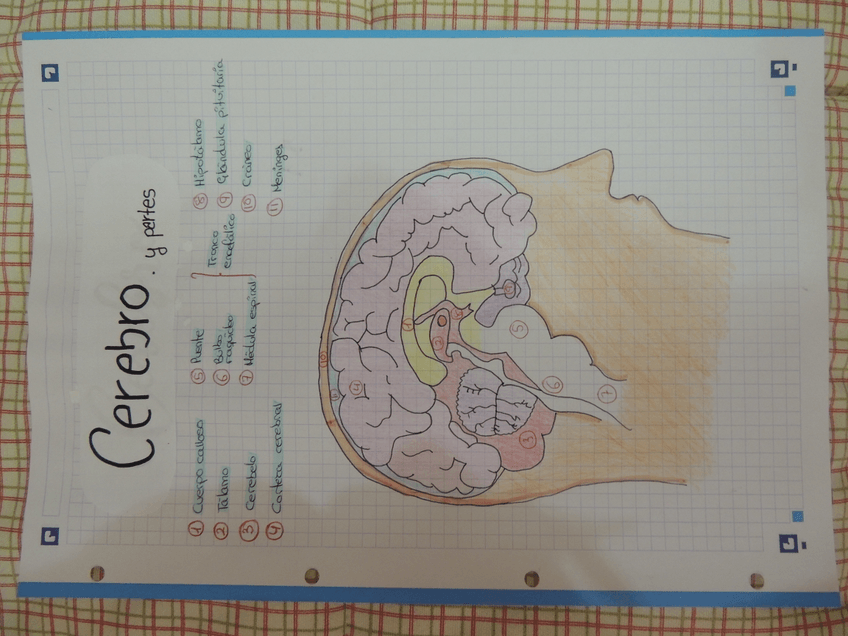 Cerebro . y partes
① Cuerpo calloso
② Tálamo
③ Cerebelo
④ Corteza cerebral
⑤ Puente
⑥ Bulbo
raquídeo
⑦ Médula espinal
Tronco
encefálico
⑧ Hipotálamo
⑨ Glándula pituitaria
⑩ Cráneo
⑪ Meninges
10
11
4
1
2
8
9
5
3
6
7